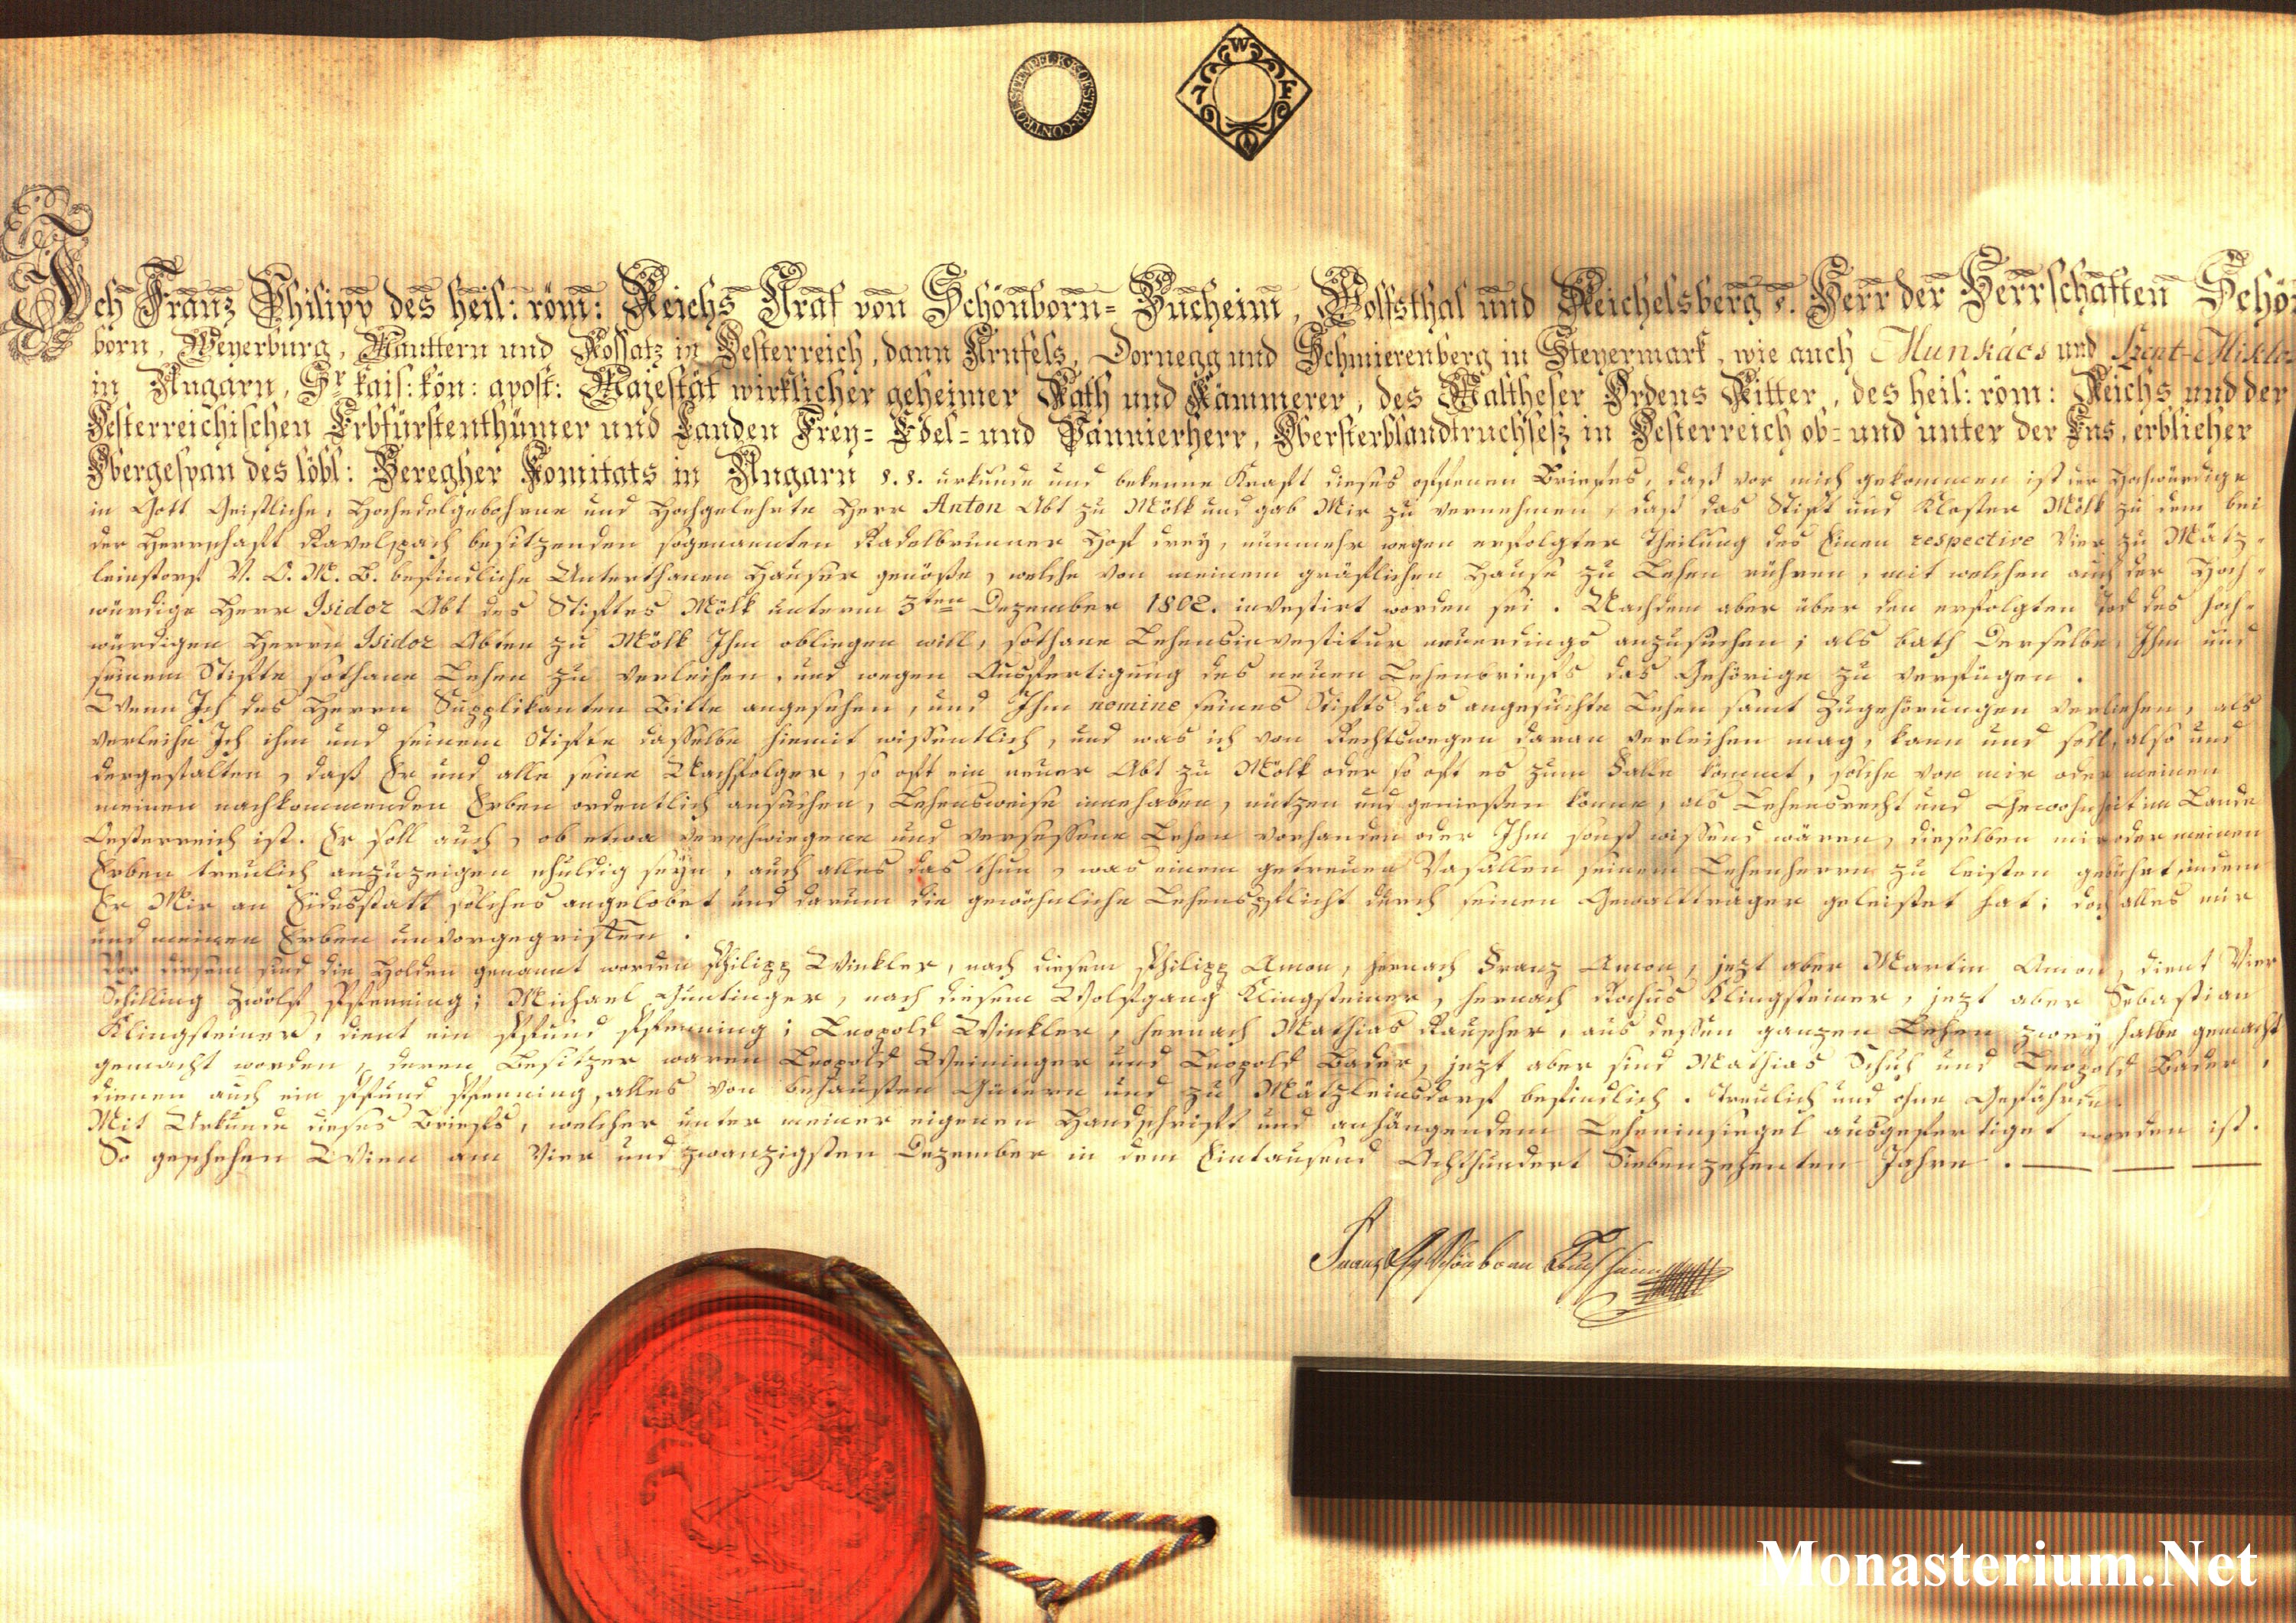 CONTROL STEMPEL K. K. OESTER.
W 7 F
Ich Franz Philipp des heil: röm: Reichs Graf von Schönborn= Bucheim, Wolfsthal und Reichelsberg &. Herr der Herrschaften Schön
born, Weyerburg, Mauttern und Rossatz in Oesterreich, dann Arnfels, Dornegg und Schmierenberg in Steyermark, wie auch Munkács und Szent-Miklos
in Ungarn, Sr kais: kön: apost: Majestät wirklicher geheimer Rath und Kämmerer, des Maltheser Ordens Ritter, des heil: röm: Reichs und der
Oesterreichischen Erbfürstenthümer und Landen Frey= Edel= und Pannierherr, Obersterblandtruchseß in Oesterreich ob= und unter der Ens, erblicher
Obergespan des löbl: Beregher Komitats in Ungarn &. &. urkunde und bekenne Kraft dieses offenen Briefes, daß vor mich gekommen ist der Hochwürdige
in Gott Geistliche, Hochedelgebohrne und Hochgelehrte Herr Anton Abt zu Mölk und gab Mir zu vernehmen, daß das Stift und Kloster Mölk zu dem bei
der Herrschaft Ravelspach besitzenden sogenannten Radelbrunner Hof drey, nunmehr wegen erfolgter Theilung des Einen respective Vier zu Mätz=
leinstorf V. O. M. B. befindliche Unterthanen Häuser genöße, welche von meinem gräflichen Hause zu Lehen rühren, mit welchen auch der Hoch=
würdige Herr Isidor Abt des Stiftes Mölk unterm 3ten Dezember 1802. investirt worden sei. Nachdem aber über den erfolgten Tod des hoch=
würdigen Herrn Isidor Abten zu Mölk Ihm obliegen will, sothane Lehensinvestitur neuerdings anzusuchen; als bath Derselbe, Ihm und
seinem Stifte sothane Lehen zu verleihen, und wegen Ausfertigung des neuen Lehenbriefs das Gehörige zu verfügen.
Wenn Ich des Herrn Supplikanten Bitte angesehen, und Ihm nomine seines Stifts das angesuchte Lehen samt Zugehörungen verliehen, als
verleihe Ich ihm und seinem Stifte dasselbe hiemit wissentlich, und was ich von Rechtswegen daran verleihen mag, kann und soll, also und
dergestalten, daß Er und alle seine Nachfolger, so oft ein neuer Abt zu Mölk oder so oft es zum Falle kömmt, solche von mir oder meinen
meinen nachkommenden Erben ordentlich ansuchen, Lehensweise innehaben, nützen und genießen könne, als Lehensrecht und Gewohnheit im Lande
Oesterreich ist. Er soll auch, ob etwa verschwiegene und versessene Lehen vorhanden oder Ihm sonst wissend wären, dieselben mir oder meinen
Erben treulich anzuzeigen schuldig seyn, auch alles das thun, was einem getreuen Vasallen seinem Lehenherrn zu leisten gebührt, indem
Er Mir an Eidesstatt solches angelobet und darum die gewöhnliche Lehenspflicht durch seinen Gewaltträger geleistet hat; doch alles mir
und meinen Erben unvorgegriffen.
Vor diesem sind die Holden genannt worden Philipp Winkler, nach diesem Philipp Amon, hernach Franz Amon, jezt aber Martin Amon, dient Vier
Schilling Zwölf Pfenning; Michael Guntinger, nach diesem Wolfgang Klingsteiner, hernach Rochus Klingsteiner, jezt aber Sebastian
Klingsteiner, dient ein Pfund Pfenning; Leopold Winkler, hernach Mathias Rauscher, aus dessen ganzen Lehen zwey halbe gemacht
gemacht worden, deren Besitzer waren Leopold Weininger und Leopold Bader, jezt aber sind Mathias Schuh und Leopold Bader,
dienen auch ein Pfund Pfenning, alles von behausten Gütern und zu Mätzleinsdorf befindlich. Treulich und ohne Gefährde.
Mit Urkunde dieses Briefs, welcher unter meiner eigenen Handschrift und anhängendem Leheninsiegel ausgefertiget worden ist.
So geschehen Wien am Vier und zwanzigsten Dezember in dem Eintausend Achthundert Siebenzehenten Jahre.
Franz Ph Schönborn Buchheim
Monasterium.Net